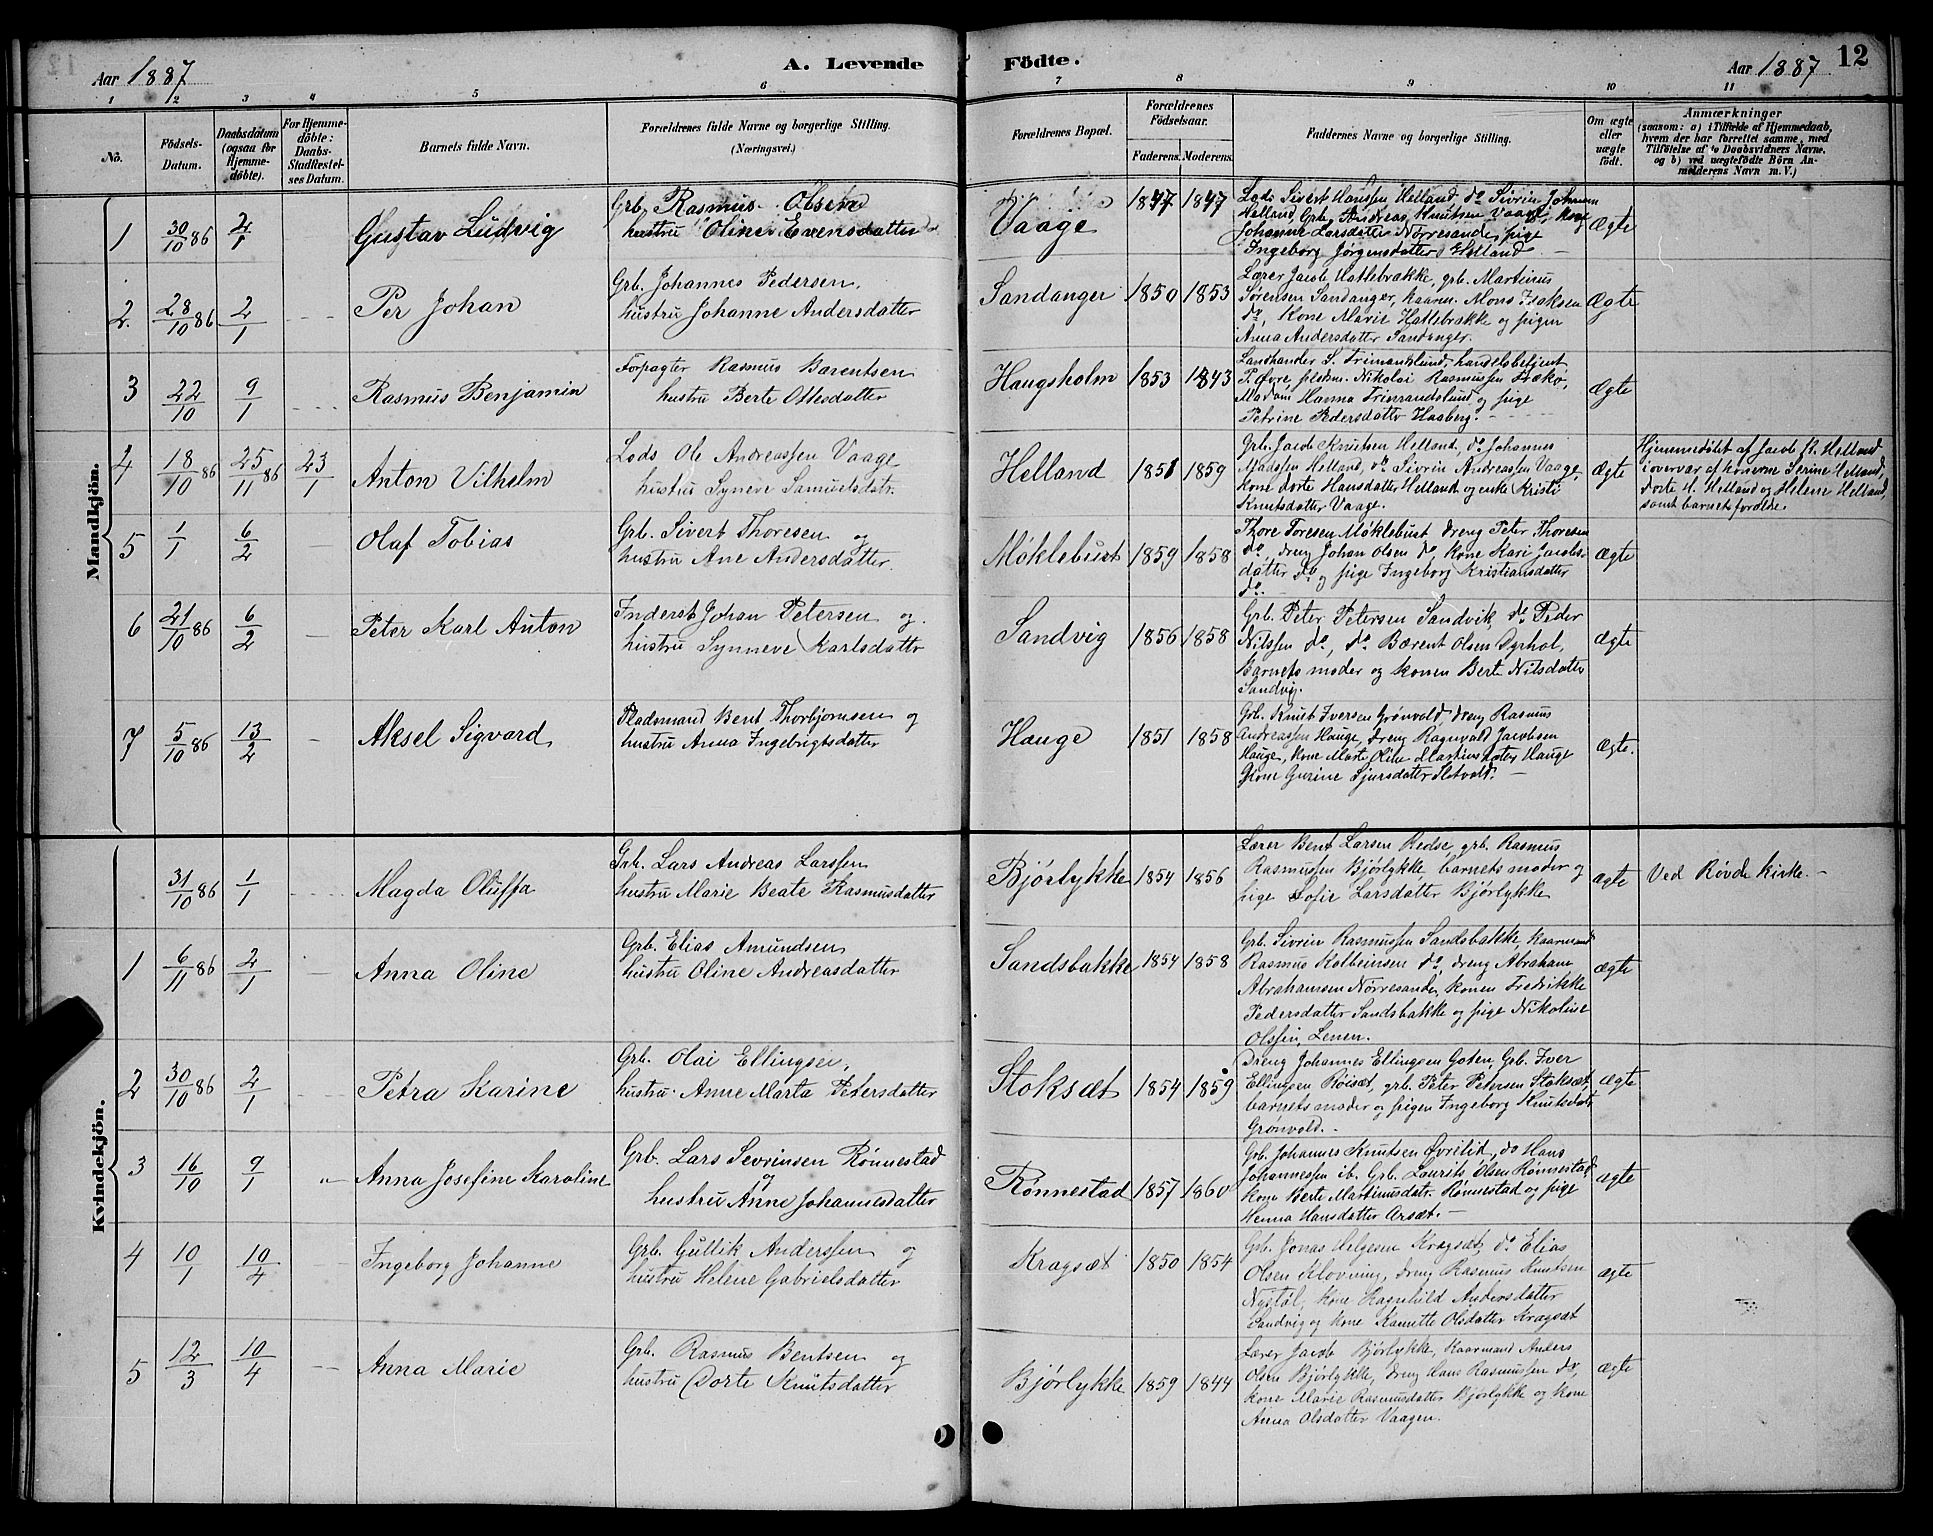 Aar 1887
A. Levende
Födte.
Aar 1887
12
1 2 3 4 5 6 7 8 9 10 11
No.
Födsels-Datum.
Daabsdatum (ogsaa for Hjemme-döbte).
For Hjemme-döbte: Daabs-Stadfestel-ses Datum.
Barnets fulde Navn.
Forældrenes fulde Navne og borgerlige Stilling.
(Næringsvei.)
Forældrenes Bopæl.
Forældrenes Födselsaar.
Faderens. Moderens.
Faddernes Navne og borgerlige Stilling.
Om ægte eller uægte födt.
Anmærkninger
(saasom: a) i Tilfælde af Hjemmedaab,
hvem der har forrettet samme, med
Tilföielse af to Daabsvidners Navne,
og b) ved uægtefödte Börn An-
melderens Navn m. V.)
Mandkjön.
1 30/10 86 2/1 Gustav Ludvig
Grb. Rasmus Olsen
hustru Oline Evensdatter
Vaage 1847 1847
Lods Sivert Hanssen Helland, do Sivrin Johannen
Helland, Grb. Andreas Knutsen Vaage, kone
Johanne Larsdatter Nørresande, pige
Ingeborg Jørgensdatter Helland
Ægte
2. 28/10 86 2/1 Per Johan
Grb. Johannes Pedersen,
hustru Johanne Andersdatter
Sandanger 1850 1853
Lærer Jacob Hattebrække, grb. Martinus
Sørensen Sandanger, kaarm. Mons Isaksen
do, Kone Marie Hattebrække og pigen
Anna Andersdatter Sandanger.
Ægte
3 22/10 9/1 Rasmus Benjamin
Forpagter Rasmus Barentsen
hustru Berte Ottesdatter
Haugsholm 1853 1843
Landhandler S. Frimanslund, handelsbetjent
P. Øvre, Nikolai Rasmussen
Madam Hanna Frimandslund og pige
Petrine Pedersdatter Haaberg.
Ægte
4 18/10 86 25/11 86 23/1 Anton Vilhelm
Lods Ole Andreassen Vaage
hustru Syneve Samuelsdtr.
Helland 1851 1859
Grb. Jacob Knutsen Helland, do Johannes
Madssen Helland, do Sivrin Andreassen Vaage,
Kone Dorte Hansdatter Helland og enke Kristi
Knutsdatter Vaage.
Ægte
Hjemmedøbt af Jacob Helland
i overvær af konerne Serine Helland,
Dorte H. Helland og Helene Helland,
samt barnets forældre.
5 1/1 6/2 Olaf Tobias
Grb. Sivert Thoresen og
hustru Ane Andersdatter.
Møklebust 1859 1858
Thore Toresen Møklebust, dreng Peter Thoresen
do, dreng Johan Olsen do, kone Kari Jacobs-
datter do og pige Ingeborg Kristiansdatter
do.
Ægte
6 21/10 86 6/2 Peter Karl Anton
Inderst Johan Petersen og
hustru Synneve Karlsdattr
Sandvig 1856 1858
Grb. Peter Petersen Sandvik, do Peder
Nilssen do, do Bærent Olsen Dyrhol,
Barnets moder og konen Berte Nilsdatter
Sandvig.
ægte
7 5/10 86 13/2 Aksel Sigvard
Pladsmand Bent Thorbjornsen og
hustru Anna Ingebrigtsdatter
Hauge 1851 1858
Grb. Knut Iversen Grønvold, dreng Rasmus
Andreassen Hauge, dreng Ragnvald Jacobsen
Hauge, Kone Marte Oline Martinusdatter Hauge
Kone Gurine Sjursdatter Slotvold.
Ægte.
Kvindekjön.
31/10 86 1/1 Magda Oluffa
Grb. Lars Andreas Larssen
hustru Marie Beate Rasmusdatter
Bjørlykke 1854 1856
Lærer Bent Larsen Redse, grb. Rasmus
Rasmussen Bjørlykke, barnets moder og
pige Sofie Larsdatter Bjørlykke
ægte
Ved Røvde kirke.
1 6/11 86 2/1 Anna Oline
Grb. Elias Amundsen
hustru Oline Andreasdatter
Sandsbakke 1854 1858
Grb. Sivrin Rasmussen Sandsbakke, kaarmand
Rasmus Kolbeinsen do, dreng Abraham
Abrahamsen Nørresande, konen Fredrikke
Pedersdatter Sandsbakke og pige Nikoline
Olssen, Lenen.
ægte
2 30/10 86 2/1 Petra Karine
Grb. Olai Ellingsen,
hustru Anne Marta Petersdatter
Stoksæt 1854 1859
Dreng Johannes Ellingsen Goten, Grb. Iver
Ellingsen Røisæt, grb. Peter Petersen Stoksæt,
barnets moder og pigen Ingeborg Knutsdatr
Grønvold.
ægte
3 16/10 9/1 Anna Josefine Karoline
Grb. Lars Sevrinsen Rønnestad
og
hustru Anne Johannesdatter
Rønnestad 1857 1860
Grb. Johannes Knutsen Øvrelid, do Hans
Johannessen ib. Grb. Laurits Olsen Rønnestad,
kone Berte Martinusdatr. Rønnestad og pige
Henna Hansdatter Arsæt.
ægte
4 10/1 10/4 Ingeborg Johanne
Grb. Gullik Anderssen og
hustru Helene Gabrielsdatter
Kragsæt 1850 1854
Grb. Jonas Helgesen Kragsæt, do Elias
Olsen Kløvning, dreng Rasmus Knutsen
Nystøl, kone Ragnhild Andersdatter
Sandvig og kone Kanutte Olsdatter Kragsæt
ægte
5 12/3 10/4 Anna Marie
Grb. Rasmus Bentsen og
hustru Dorte Knutsdatter
Bjørlykke 1859 1844
Lærer Jacob Bjørlykke, Kaarmand Anders
Olsen Bjørlykke, dreng Hans Rasmussen do,
kone Marie Rasmusdatter Bjørlykke og kone
Anna Olsdatter Vaagen.
ægte